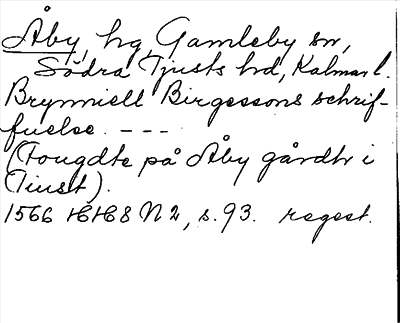 Åby, hg, Gamleby sn,
Södra Tjusts hd, Kalmar l.
Brynniell Birgessons schrif-
fuelse. ---
(Fougdte på Åby gårdh i
Tiust).
1566 HH 8 N 2, s. 93. regest.